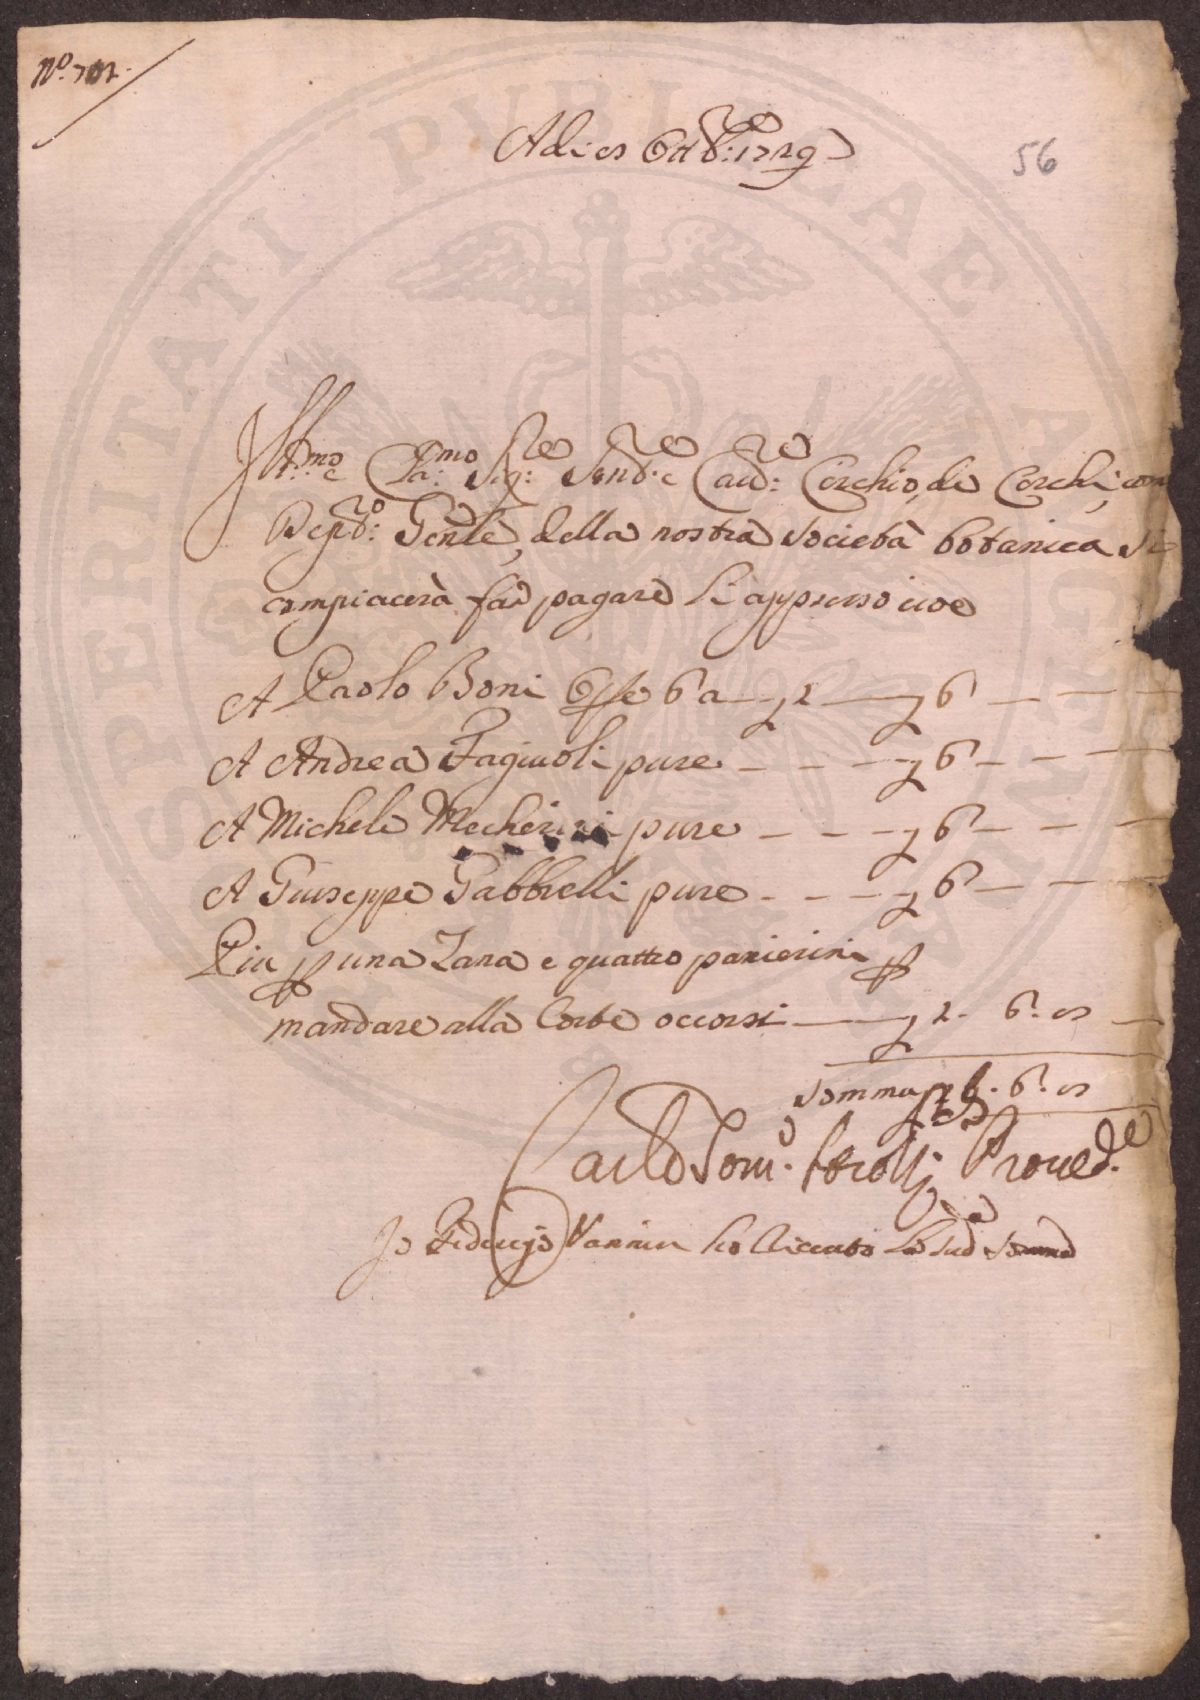 N.o 701.
56
Adi es Ottb.re 1729
Ill.mo e Cla.mo Sig.re Send.re e Caud.re Cerchio, de Cerchi, com
Dep.to Gente, della nostra società botanica si
compiacerà far pagare li appresso cioe
A Paolo Boni Op.e 6 a — 2 — 6 —
A Andrea Fagiuoli pure — — — 6 — —
A Michele Mecherini pure — — — 6 — —
A Giuseppe Gabbrielli pure — — — 6 — —
Piu p una Zana e quattro panierini p
mandare alla Corte occorsi — 2. 6. es —
Somma 6. 6. es
Carlo Tom. Proued.e
Io Federigo Vannini ho riceuto la sud.a somma
SPERITATI PUBLICAE AUGENDAE